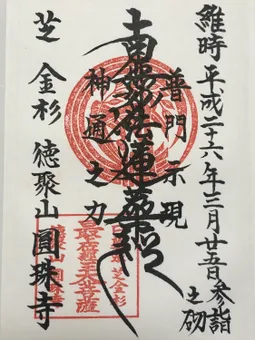 維時平成二十六年三月廿五日参詣
之砌
普門示現
南無妙法蓮華経
神通之力
芝金杉
最上位經王大菩薩
芝金杉 徳聚山 圓珠寺